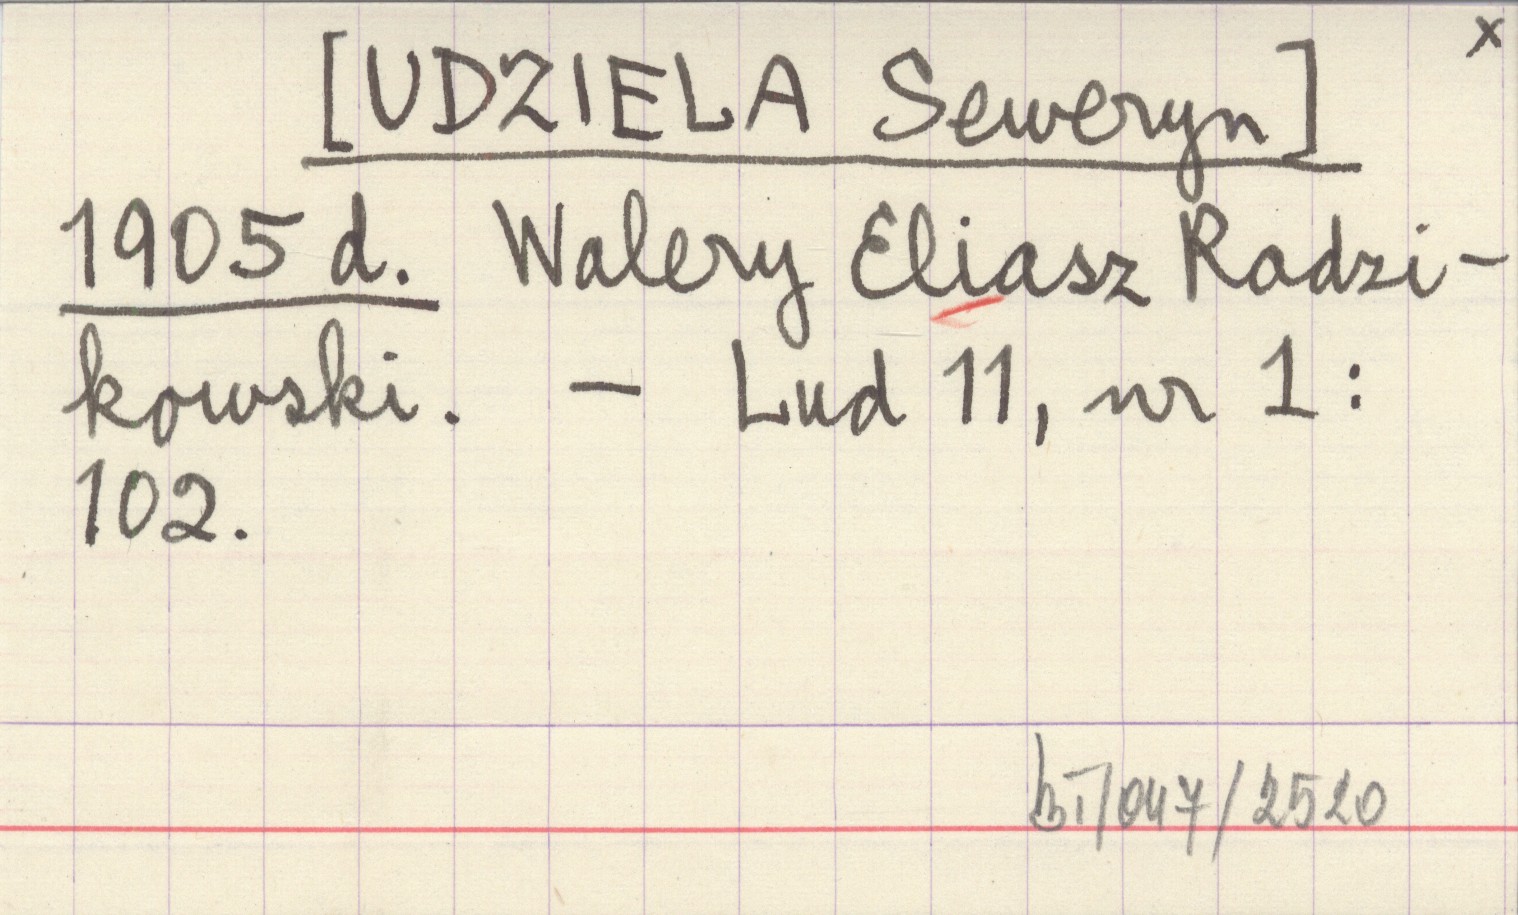 x
[UDZIELA Seweryn]
1905 d. Walery Eliasz Radzi-
kowski. - Lud 11, nr 1:
102.
bI/047/2520